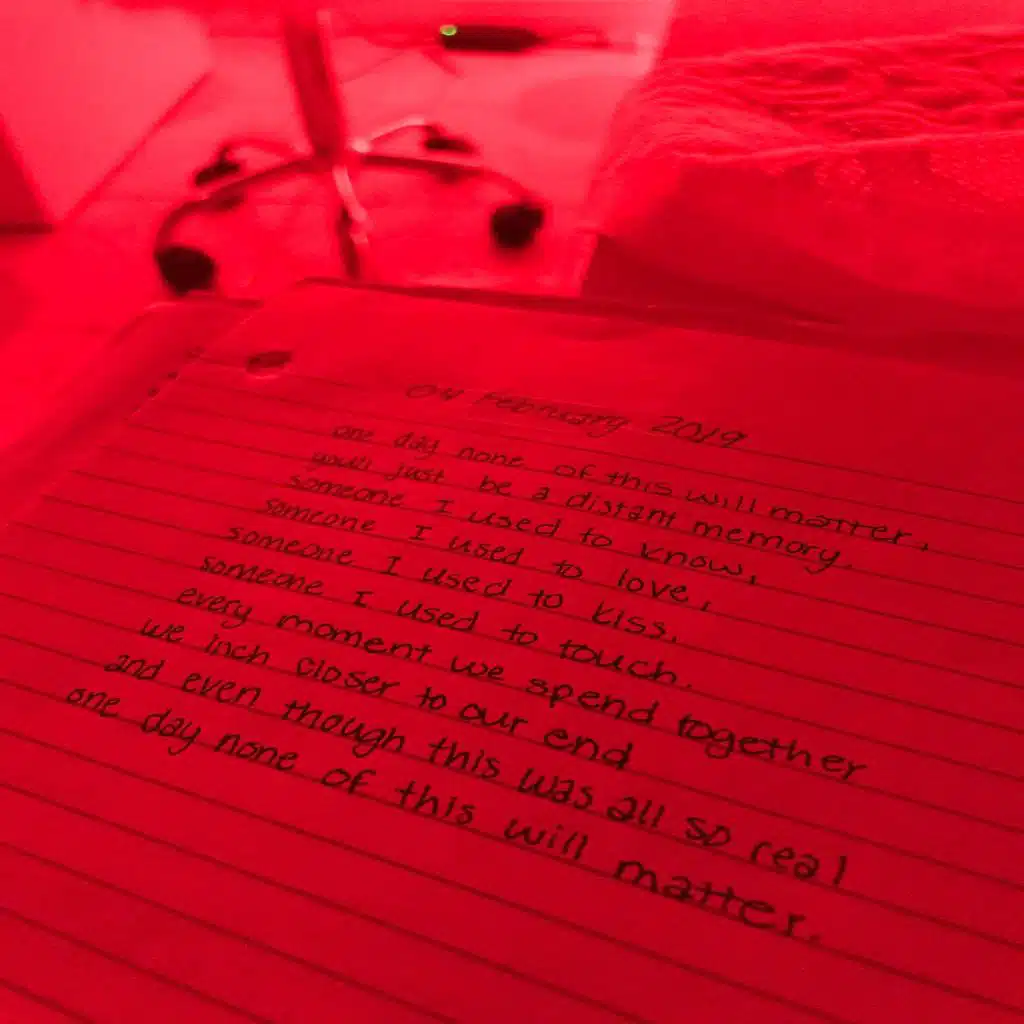 04 February 2019
one day none of this will matter,
you'll just be a distant memory.
someone I used to know,
someone I used to love,
someone I used to kiss,
someone I used to touch.
every moment we spend together
we inch closer to our end
and even though this was all so real
one day none of this will matter.